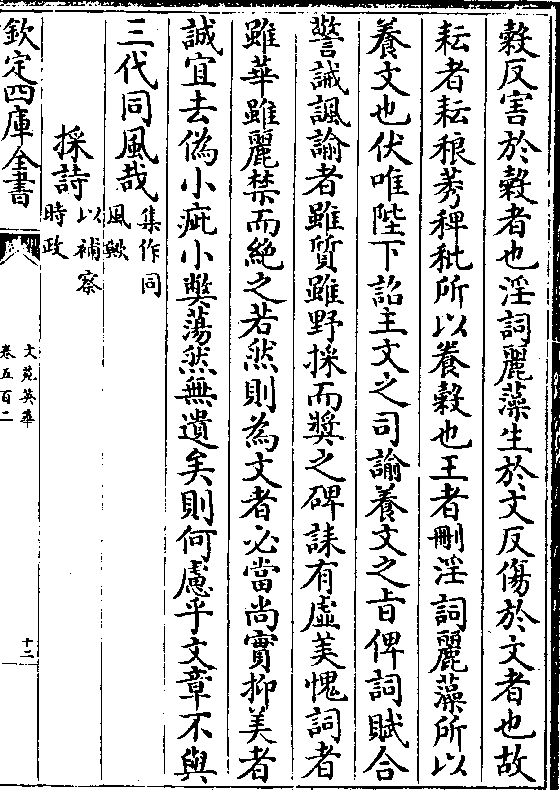 穀反害於穀者也淫詞麗藻生於文反傷於文者也故
耘者耘稂莠稗秕所以養穀也王者刪淫詞麗藻所以
養文也伏唯陛下詔主文之司諭養文之旨俾詞賦合
警誡諷論者雖質雖野採而奬之碑誄有虚美愧詞者
雖華雖麗禁而絶之若然則為文者必當尚實抑美者
誠宜去偽小疵小弊蕩然無遺矣則何慮乎文章不與
三代同風哉集作同風歟
採詩以補察時政
欽定四庫全書
文苑英華
卷五百二
十二